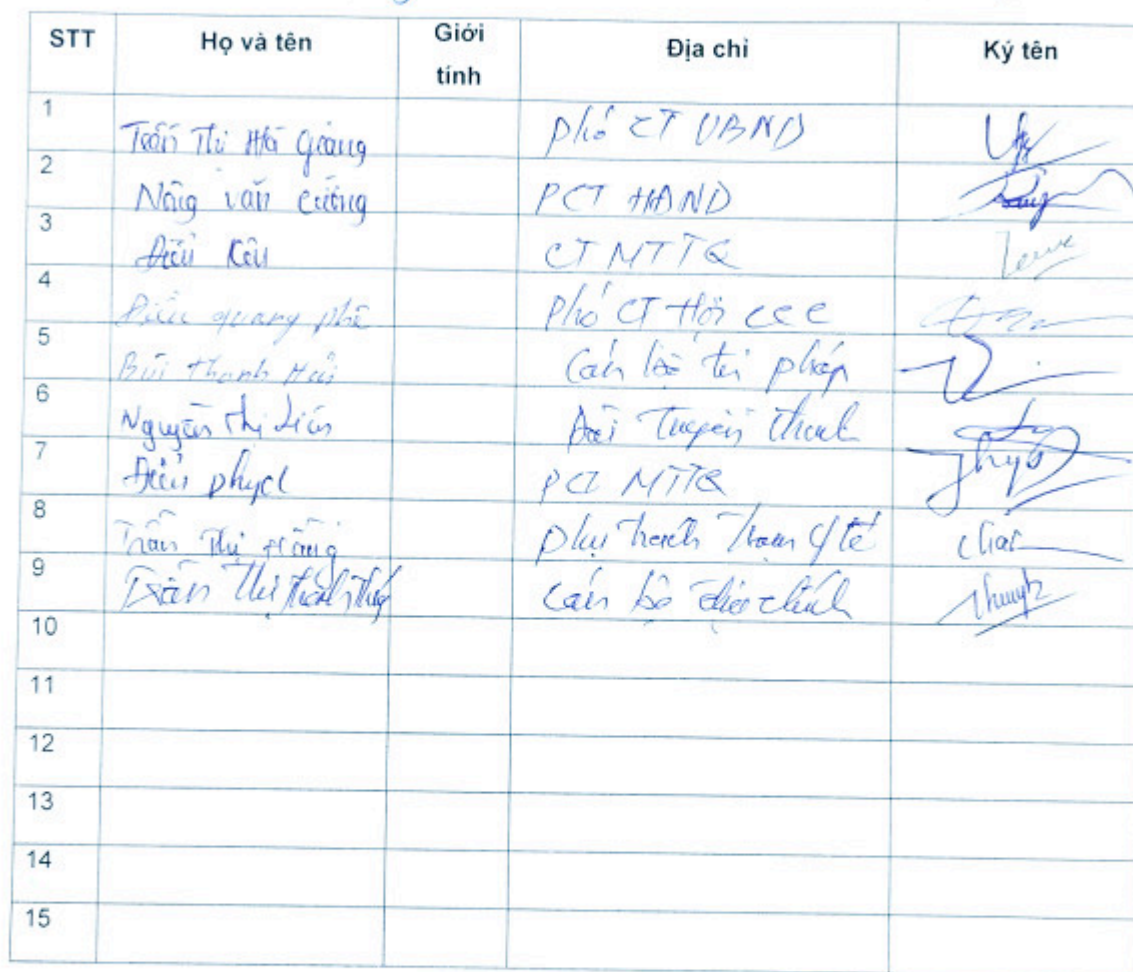 STT Họ và tên Giới tính Địa chỉ Ký tên
1 Trần Thị Hà Giang Phó CT UBND
2 Nông Văn Cường PCT HĐND
3 Điểu Kêu CT MTTQ
4 Điểu quang phê Phó CT Hội CCC
5 Bùi Thanh Hải Cán bộ tư pháp
6 Nguyễn Thị Liên Đài Truyền thanh
7 Điểu phực PCT MTTQ
8 Trần Thị Hằng Phụ trách Trạm Y tế
9 Trần Thị Thanh Thúy Cán bộ địa chính
10
11
12
13
14
15